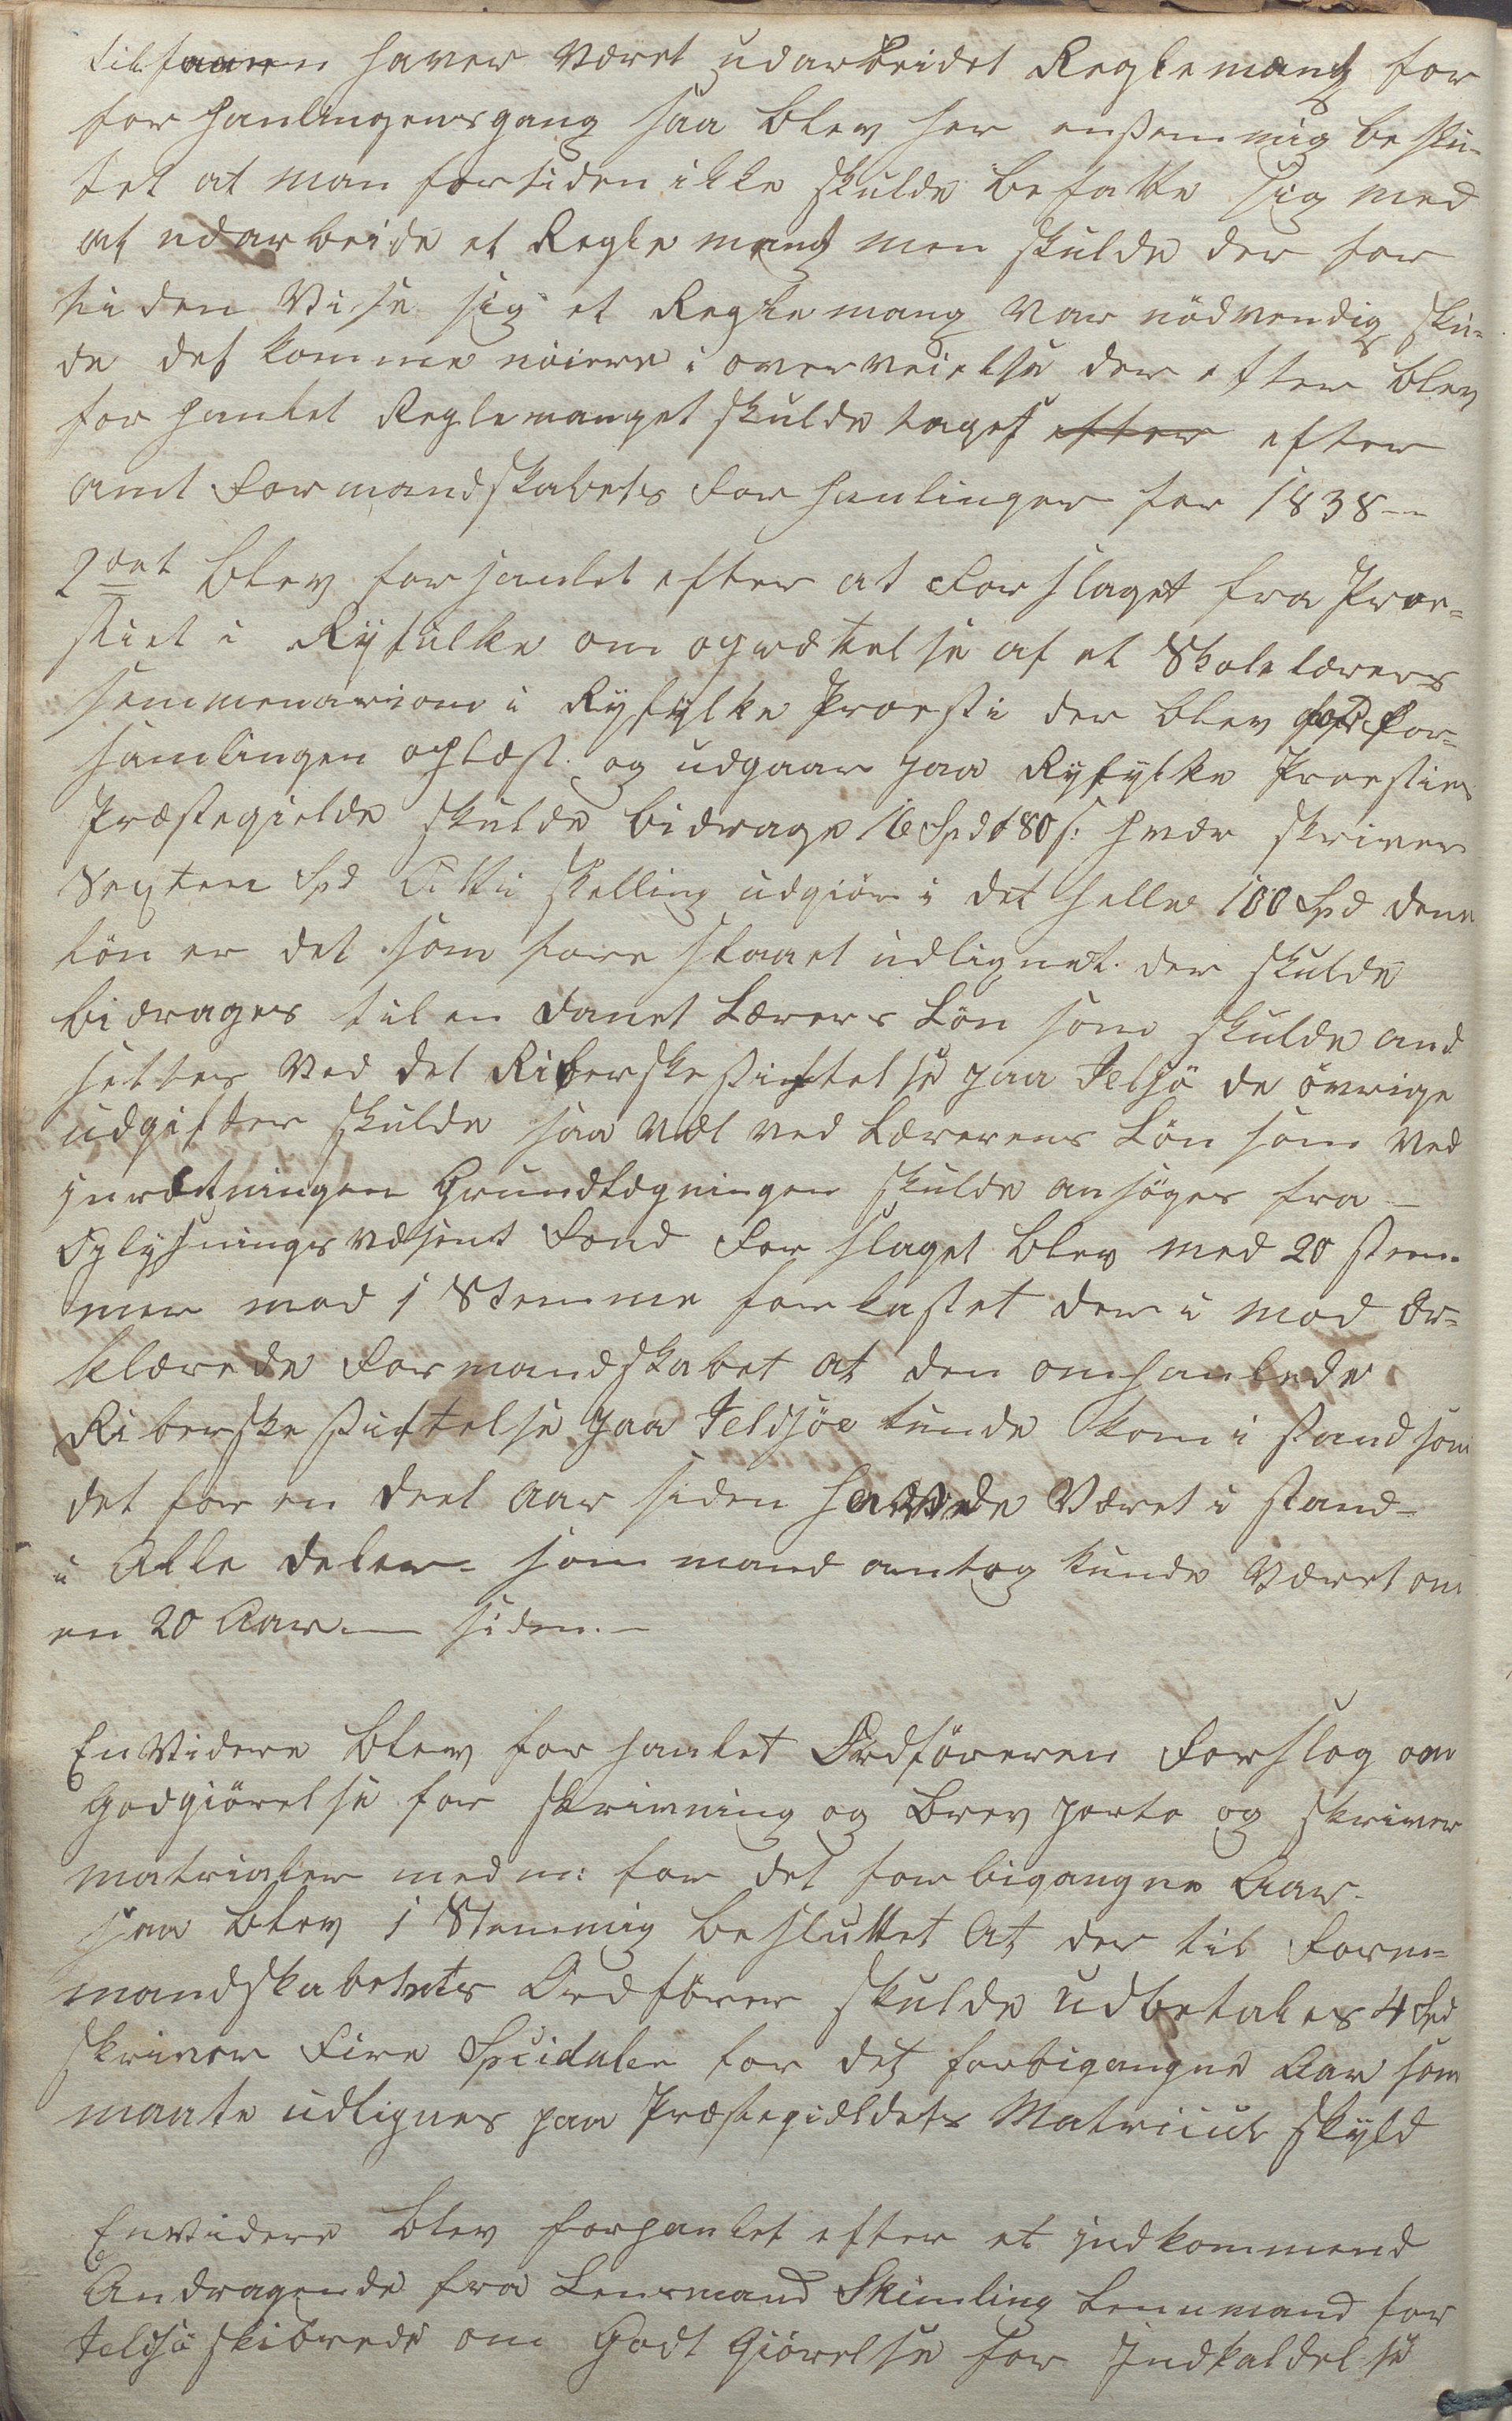 tilfaarn haver Været udarbeidet Reglemang for
for hanlingensgang saa blev her ensemmig beslu-
tet at man fortiden ikke skulde befatte sig med
at udarbeide et Reglemang men skulde der for
tiden Vise sig et Reglemang var nödvendig sku-
de det komme nöiere i overveielse der efter blev
for hanlet Reglemanget skulde tages efter efter
amt Formandskabets Forhanlinger for 1838 --
2det blev for hanlet efter at Forslaget fra Proe-
stiet i Ryfulke om oprættelse af et Skolelærers
semmenarium i Ryfylke Proesti der blev for For-
samlingen oplæst. og udgaar paa Ryfylke Proesties
Præstegielde skulde bidrage 16 Spd 80 s: hvær skriver
Sexten Spd Otti skelling udgiör i det helle 100 Spd denne
lön er det som fore staaet udlignet. der skulde
bidrages til en danet Lærers Lön som skulde and
settes Ved det Riberske stiftelse paa Jelsö de övrige
udgifter skulde saa vel ved Lærerens Lön som ved
jnrætningen Grundlægningen skulde ansöges fra -
Oplysnings væsent Fond Forslaget blev med 20 stem-
mer mod 1 Stemme forkastet der i mod Er-
klærede Formandskabet at den omhanlede
Riberske stiftelse paa Jeldsöe kunde kom i stand som
det for en deel aar siden havde Været i stand -
i Alle deler- som mand antog kunde Været om
en 20 Aar - siden. -
En Videre blev for hanlet Ordföreren Forslag om
Godgiörelse for skrivning og Brev porto og skriver
matrialer med m: for det forbigangne Aar -
saa blev 1 Stemmig besluttet At der til Form-
mandskabetets Ordförer skulde udbetales 4 Spd
skriver Fire Speidaler for det forbigangne Aar som
maate udlignes paa Præstegieldets Matricul skyld
En Videre blev forhanlet efter et jndkommend
Andragende fra Lensmand Skimling Lennmand for
Jelsö skibrede om Godt Giörelse for Jndkaldelse